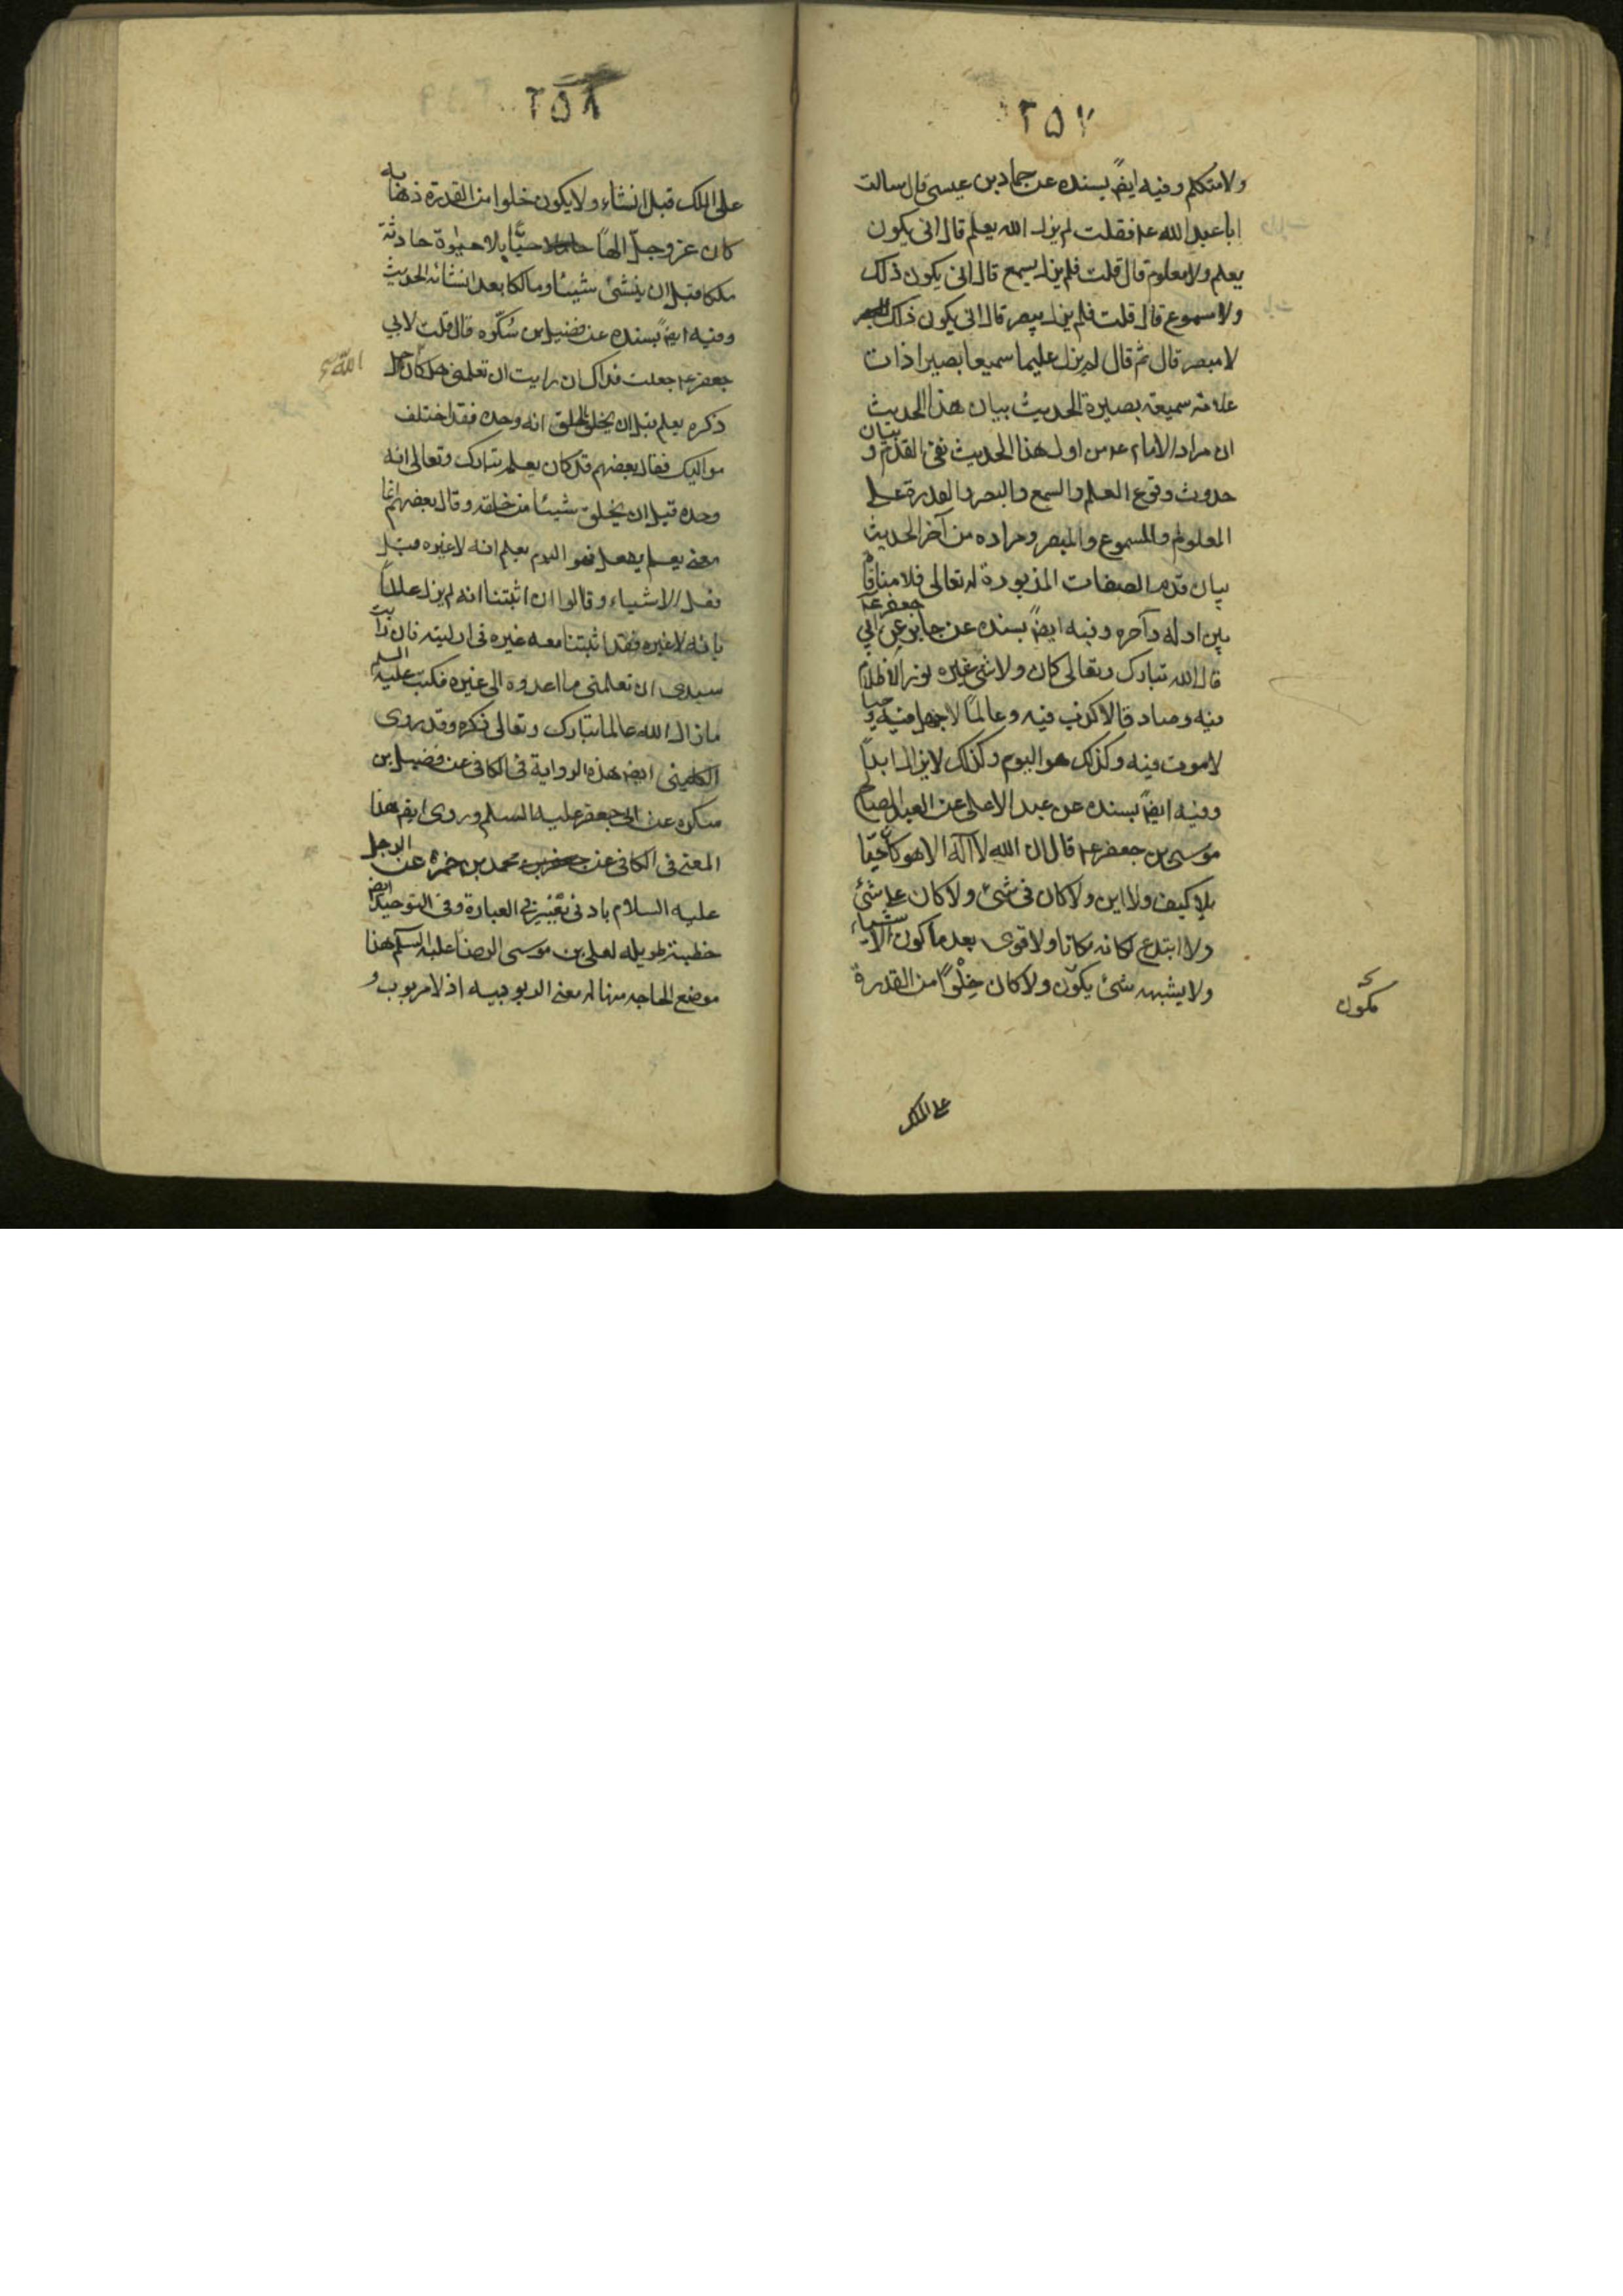 ٢٥٧
ولا متكلم وفيه ايضً بسنده عن حماد بن عيسى قال سالت
ابا عبد الله ع۴ فقلت لم يزل الله يعلم قال انى يكون
يعلم ولا معلوم قال قلت فلم يزل يسمع قال انى يكون ذلك
ولا مسموع قال قلت فلم يزل يبصر قال انى يكون ذلك
لا مبصر قال ثم قال لم يزل عليما سميعا بصيرا ذات
علامة سميعة بصيرة الحديث بيان هذا الحديث
ان مراد الامام ع۴ من اول هذا الحديث نفى القدم و بيان
حدوث وقوع العلم والسمع والبصر والقدرة على
المعلوم والمسموع والمبصر ومراده من آخر الحديث
بيان قدم الصفات المذبورة له تعالى فلا منافاة
بين اوله وآخره وفيه ايضً بسنده عن جابر عن ابي جعفر ع۴
قال ان الله تبارك وتعالى كان ولا شئ غيره نورا لا ظلام
فيه وصادقا لا كذب فيه وعالمًا لا جهل فيه و حيا
لا موت فيه وكذلك هو اليوم وكذلك لا يزال ابدًا
وفيه ايضً بسنده عن عبد الاعلى عن العبد الصالح
موسى بن جعفر ع۴ قال ان الله لا آله الا هو كان حيًا
بلا كيف ولا اين ولا كان فى شئ ولا كان على شئ
ولا ابتدع لمكانه مكانا ولا قوى بعد ما كون الاشياء
ولا يشبهه شئ يكوّن ولا كان خِلْوًا من القدرة
مكوّن
على الملك
٢٥٨
على الملك قبل انشاء ولا يكون خلوا من القدرة ذهابه
كان عز وجل الهًا حيًّا بلا حيوة حادثة
ملكا قبل ان ينشئ شيئا ومالكا بعد انشائه الحديث
وفيه ايضً بسنده عن فضيل بن سُكّره قال قلت لابي
جعفر ع۴ جعلت فداك ان رايت ان تعلمنى هل كان جل
الله
ذكره يعلم قبل ان يخلق الخلق انه وحده فقد اختلف
مواليك فقال بعضهم قد كان يعلم تبارك وتعالى انه
وحده قبل ان يخلق شيئا من خلقه وقال بعضهم انما
معنى يعلم يفعل فهو اليوم يعلم انه لا غيره قبل
فعل الاشياء وقالوا ان اثبتنا انه لم يزل عالمًا
بانه لا غيره فقد اثبتنا معه غيره فى ازليته فان رايت
سيدى ان تعلمنى ما اعدوه الى غيره فكتب عليه السلم
ما زال الله عالما تبارك وتعالى ذكره وقد روى
الكلينى ايضً هذه الرواية فى الكافى عن فضيل بن
سكره عن ابى جعفر عليه السلم وروى ايضً هذا
المعنى فى الكافى عن جعفر بن محمد بن حمزه عن الرجل
عليه السلام بادنى تغيير فى العبارة وفى التوحيد ايضً
خطبة طويله لعلى بن موسى الرضا عليه السلم هذا
موضع الحاجه منها له معنى الربوبيه اذ لا مربوب و